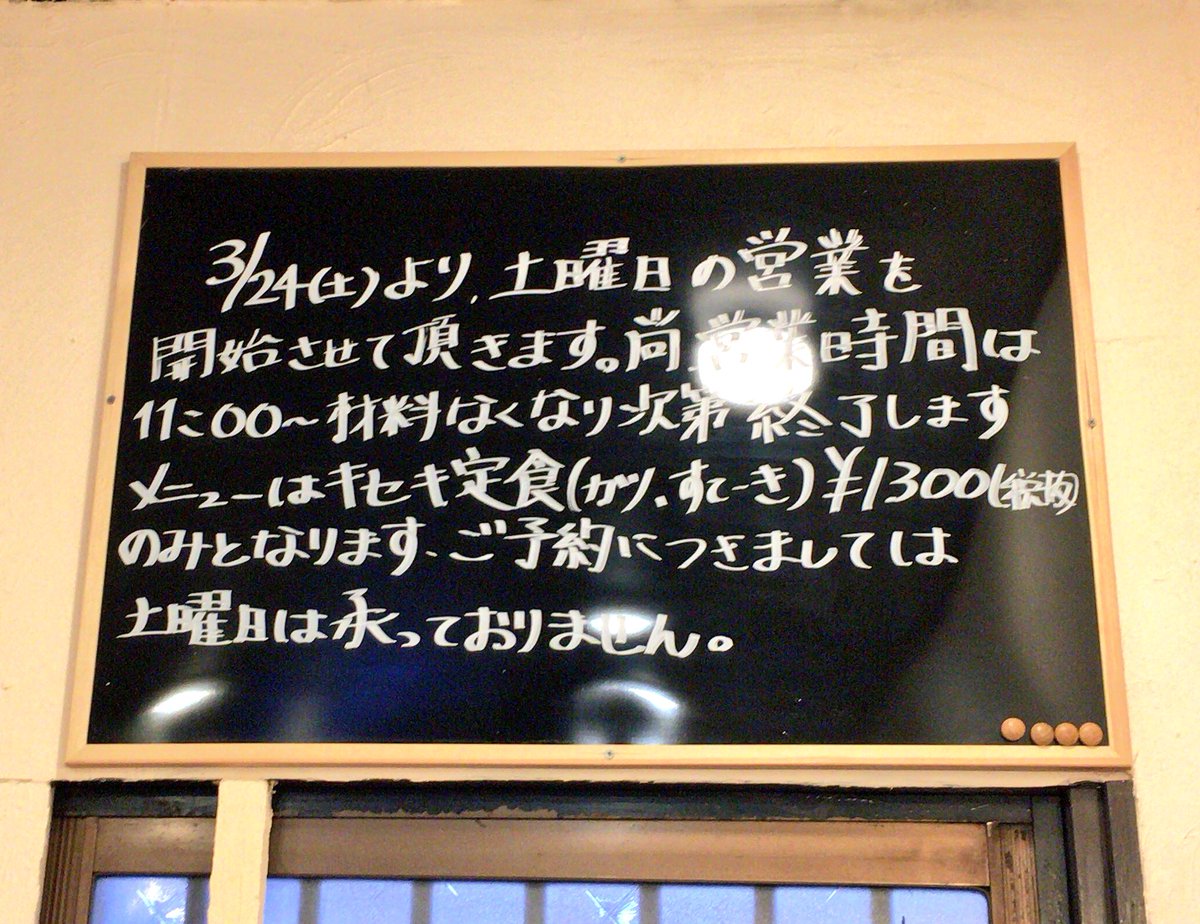 3/24(土)より、土曜日の営業を
開始させて頂きます。尚営業時間は
11:00〜材料なくなり次第終了します
メニューはキセキ定食(ガツ、すてーき)¥1300(税抜)
のみとなります、ご予約につきましては
土曜日は承っておりません。